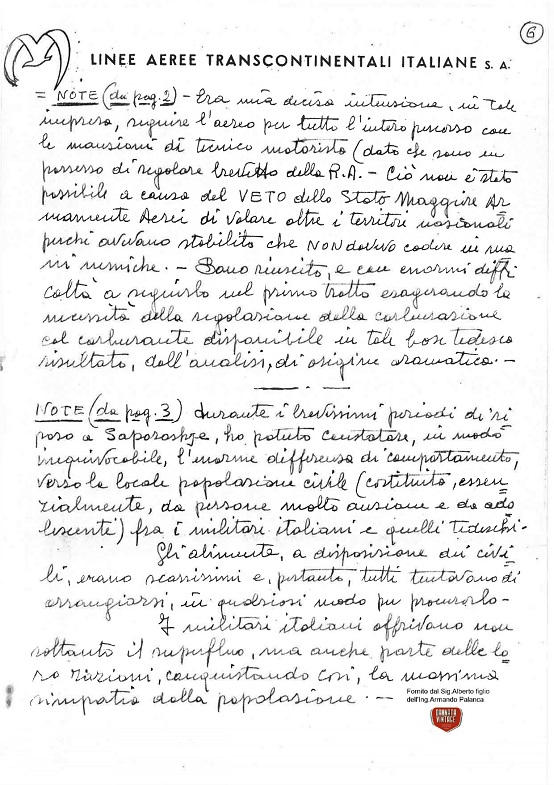 6
LINEE AEREE TRANSCONTINENTALI ITALIANE S. A.
= NOTE (da pag. 2) - Era mia decisa intuizione, in tale
impresa, seguire l'aereo per tutto l'intero percorso con
le mansioni di tecnico motorista (dato che sono in
possesso di regolare brevetto della R.A. - Ciò non è stato
possibile a causa del VETO dello Stato Maggiore Ar
mamente Aerei di volare oltre i territri nazionali
perchè avevano stabilito che NON dovevo cadere in ma
ni nemiche. - Sono riuscito, e con enormi diffi
coltà a seguirlo nel primo tratto esagerando la
necessità della regolazione della carburazione
col carburante disponibile in tale base tedesca
risultato, dall'analisi, di origine aromatica. -
NOTE (da pag. 3) durante i brevissimi periodi di ri
poso a Saporoshje, ho potuto constatare, in modo
inequivocabile, l'enorme differenza di comportamento,
verso la locale popolazione civile (costituita, essen
zialmente, da persone molto anziane e da ado
lescenti) fra i militari italiani e quelli tedeschi.
Gli alimenti, a disposizione dei civi
li, erano scarsissimi e, pertanto, tutti tentavano di
arrangiarsi, in qualsiasi modo per procurarlo -
I militari italiani offrivano non
soltanto il superfluo, ma anche parte delle lo
ro razioni, conquistando così, la massima
simpatia dalla popolazione. -
Fornito dal Sig.Alberto figlio
dell'Ing.Armando Palanca
DANNATA
VINTAGE